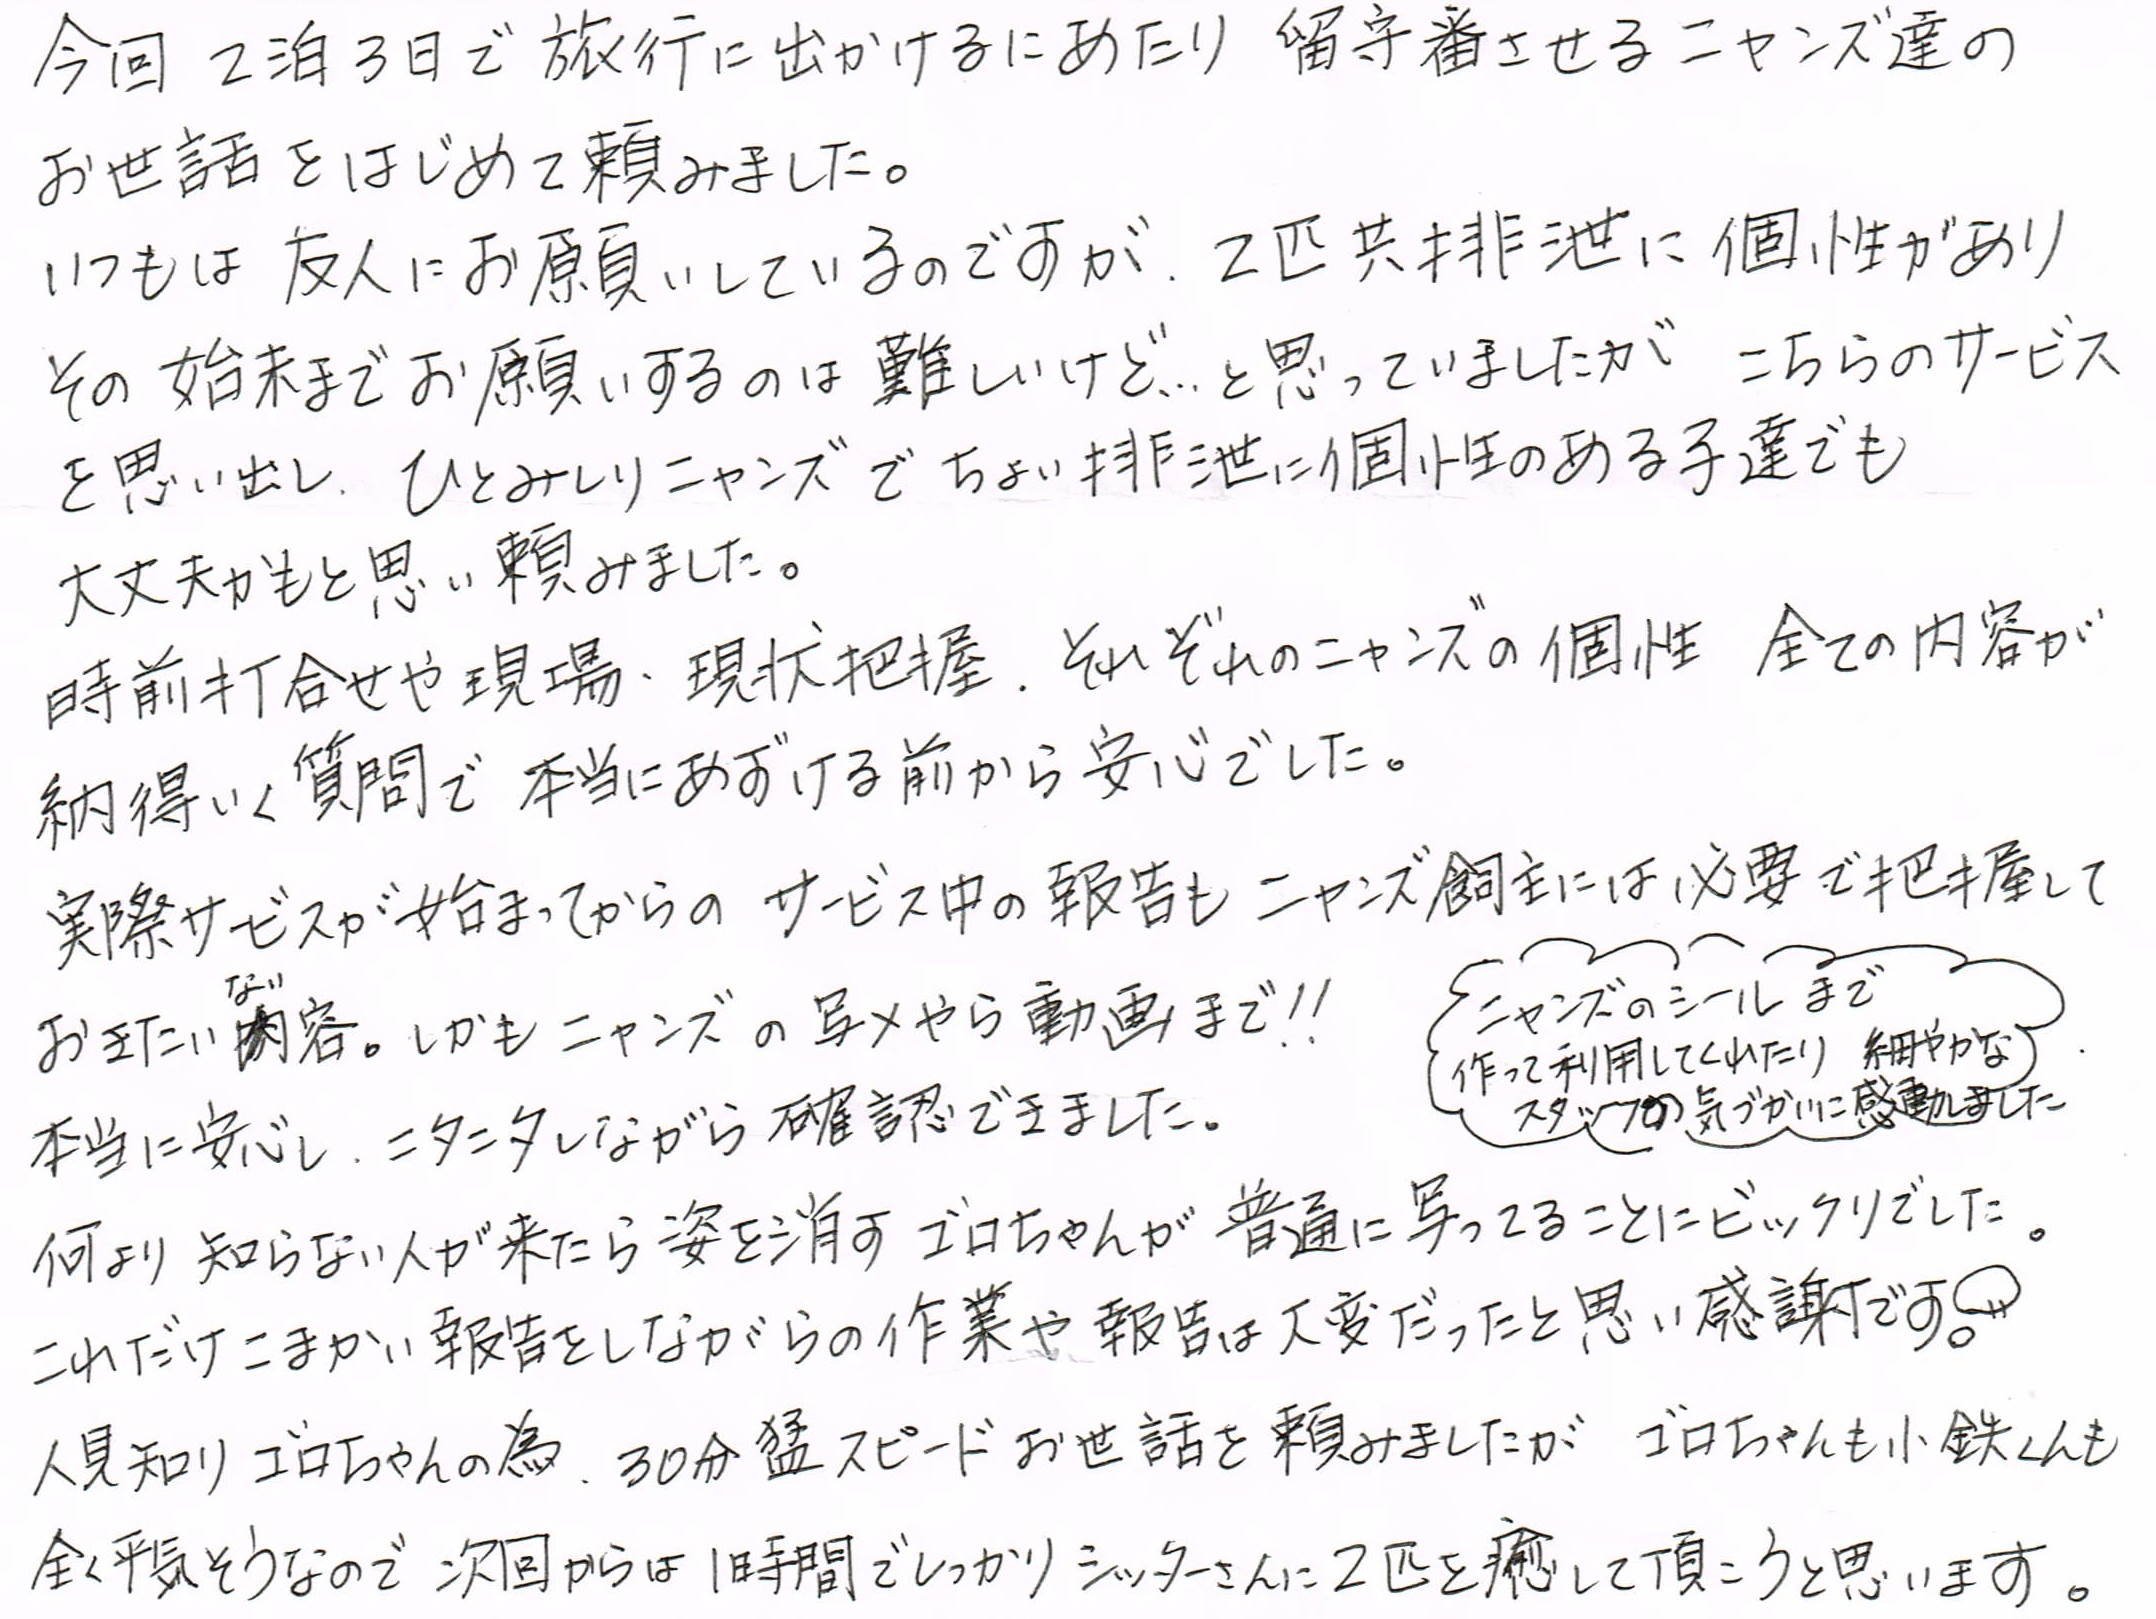 今回 2泊3日で 旅行に出かけるにあたり 留守番させるニャンズ達の
お世話をはじめて頼みました。
いつもは 友人にお願いしているのですが、2匹共排泄に個性があり
その始末までお願いするのは難しいけど…と思っていましたが こちらのサービス
を思い出し、ひとみしりニャンズでちょい排泄に個性のある子達でも
大丈夫かもと思い頼みました。
時前打合せや現場、現状把握、それぞれのニャンズの個性 全ての内容が
納得いく質問で 本当にあずける前から安心でした。
実際サービスが始まってからの サービス中の報告も ニャンズ飼主には必要で把握して
おきたい内容。しかもニャンズの写メやら動画まで!!
ない
ニャンズのシールまで
作って利用してくれたり 細やかな
スタッフの気づかいに感動しました
本当に安心し、ニタニタしながら確認できました。
何より 知らない人が来たら姿を消すゴロちゃんが 普通に写ってることにビックリでした。
これだけこまかい報告をしながらの作業や報告は大変だったと思い感謝です。
人見知りゴロちゃんの為、30分猛スピードお世話を頼みましたが ゴロちゃんも小鉄くんも
全く平気そうなので 次回からは1時間でしっかりシッターさんに2匹を癒して頂こうと思います。